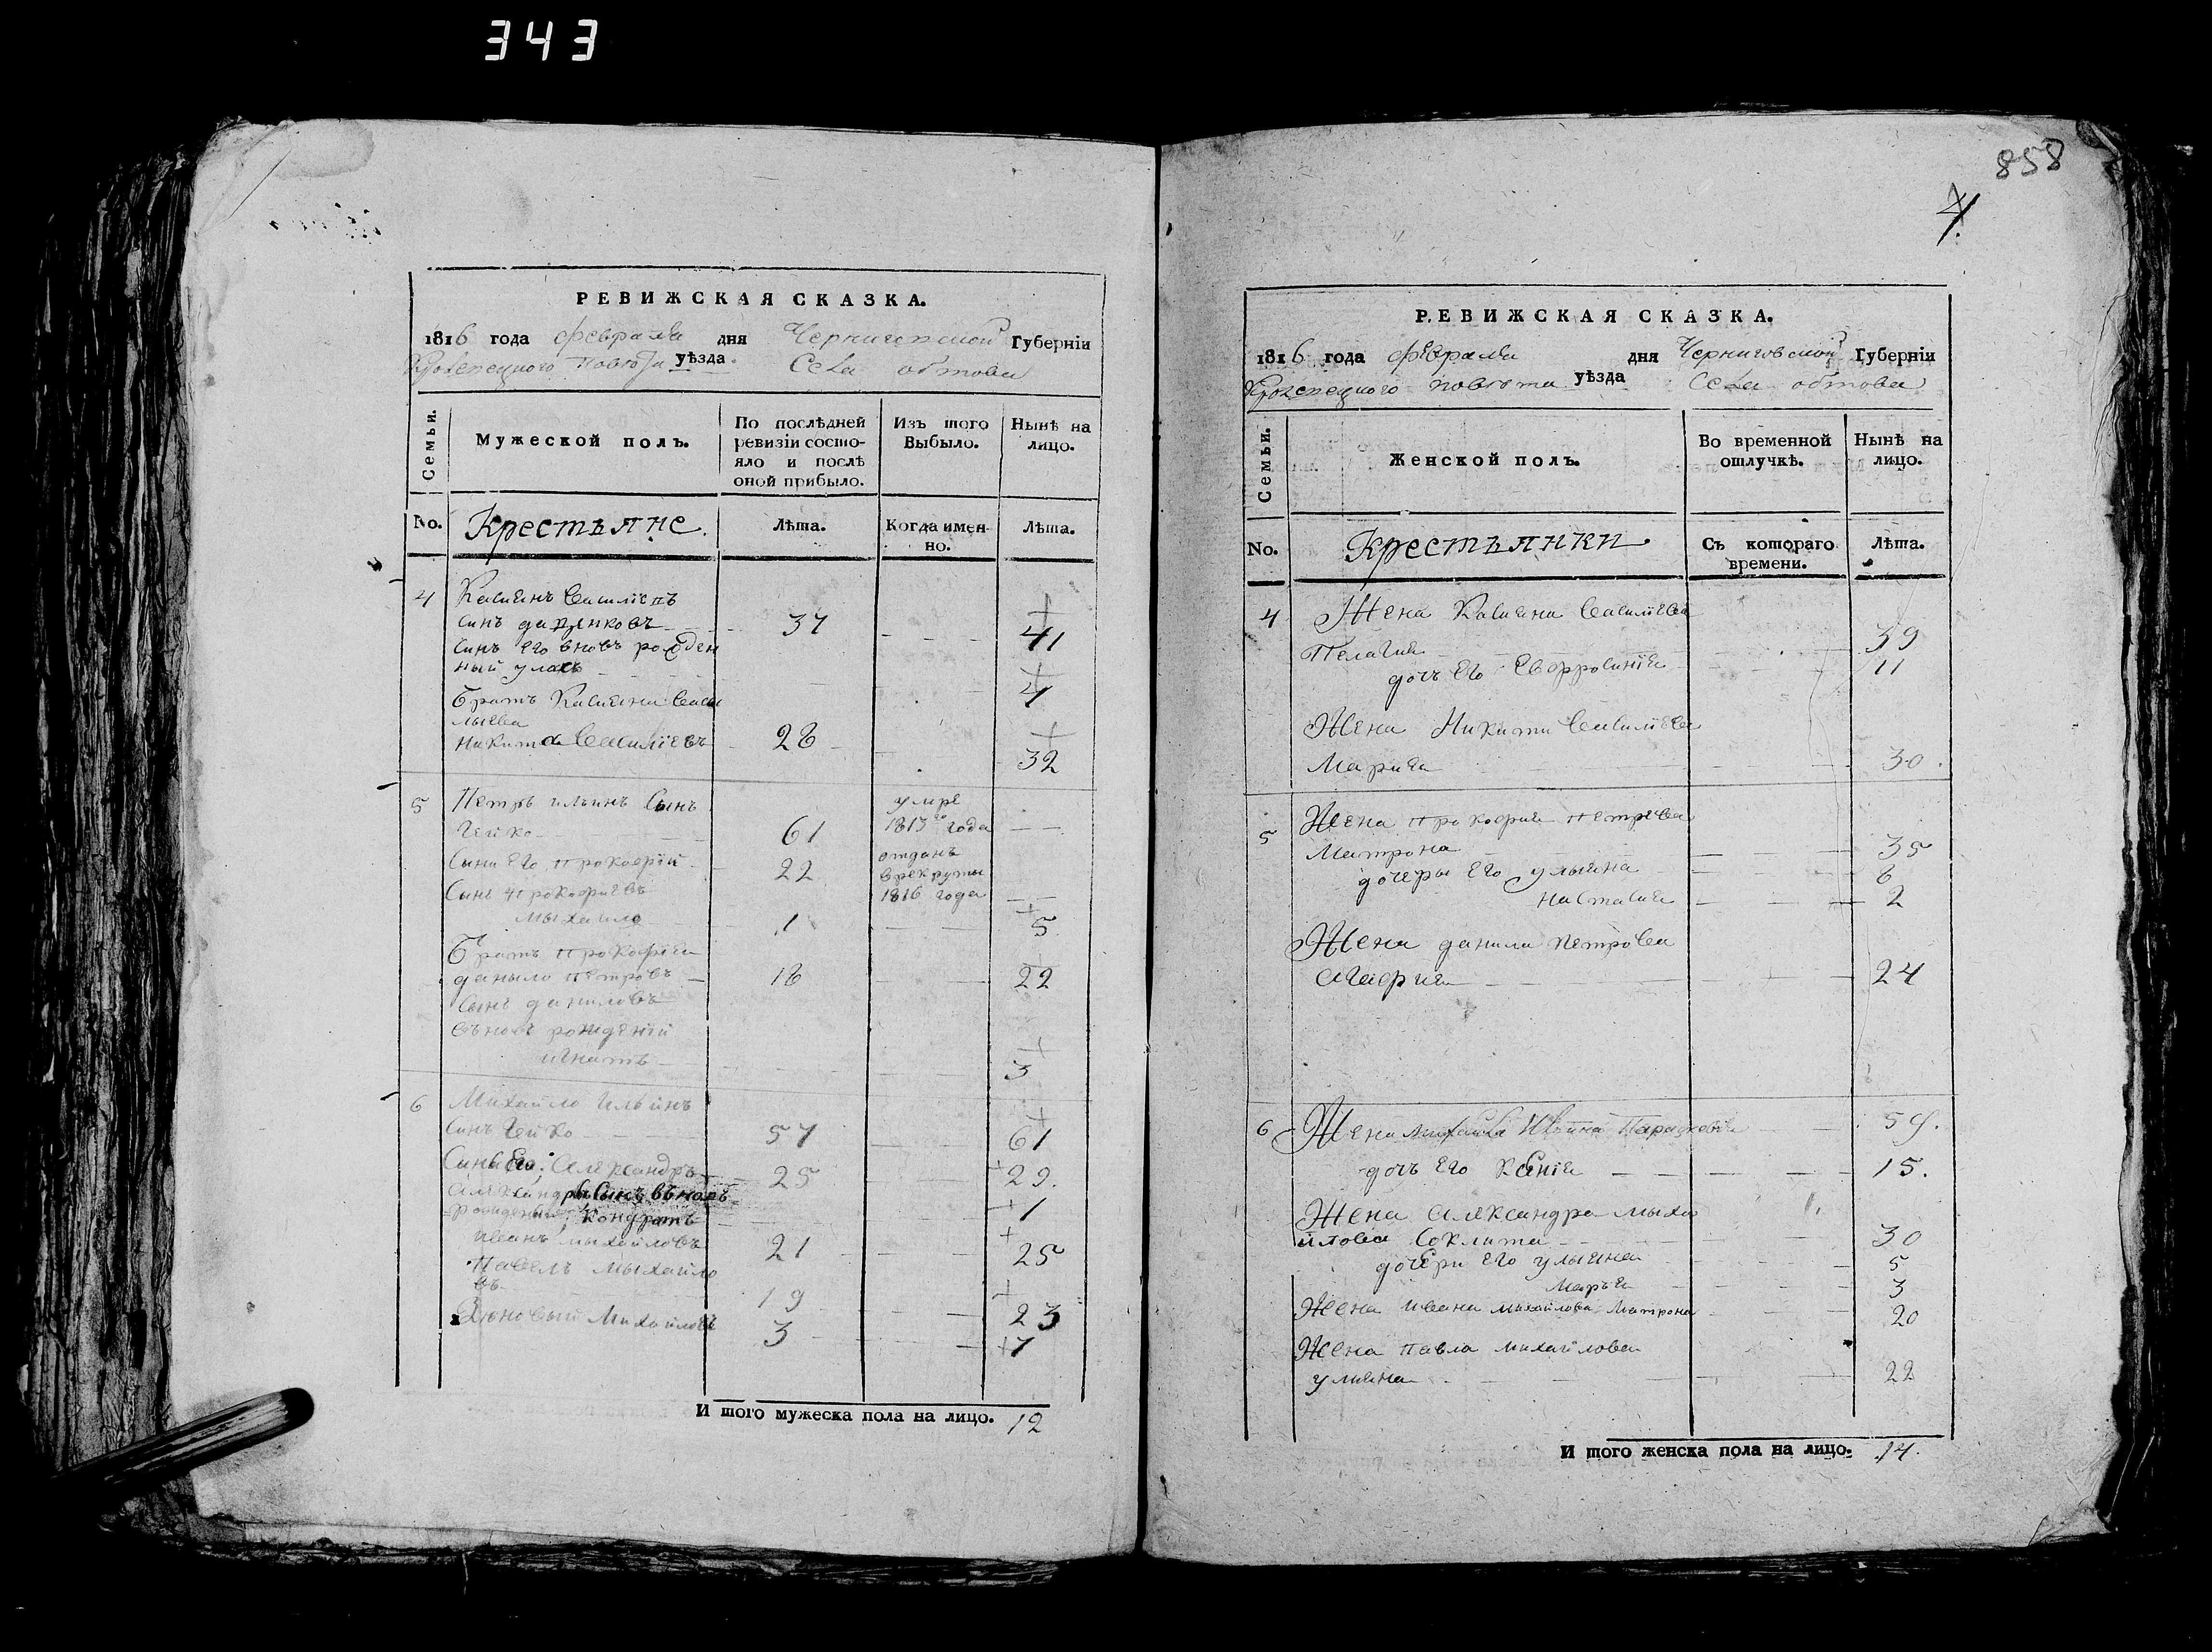 343
РЕВИЖСКАЯ СКАЗКА.
1816 года февраля дня Черниговской Губернїи
Кролевецкого повѣта уѣзда. Села обтова
Семьи. Мужеской полъ. По послѣдней ревизїи состояло и послѣ оной прибыло. Изъ того Выбыло. Нынѣ на лицо.
No. Крестьяне. Лѣта. Когда именно. Лѣта.
4 Касиянъ Василїевъ
синъ 37 41
синъ его вновь рожден
ный 4
братъ Касияна Васи
лыева
Никита Василїевъ 28 32
5 Петръ ильинъ Сынъ умре
Гейко 61 1813го года
Сынъ его прокофїй 22 отданъ
в рекруты
Сынъ прокофиевъ 1816 года
мыхайло 1 5
братъ прокофия
данило петровъ 18 22
сынъ даниловъ
вьновь рожденїй
игнатъ 3
6 Михайло Ильинъ
синъ Гейко 57 61
Синъ Его: Александръ 25 29.
Александръ Синъ вьновь
рожденый Кондратъ 1
иванъ мыхайловъ 21 25
Павелъ мыхайло
въ 19 23
Михайловъ 3 7
И того мужеска пола на лицо. 12
858
4
РЕВИЖСКАЯ СКАЗКА.
1816 года февраля дня Черниговской Губернїи
Кролевецкого повѣта уѣзда Села обтова
Семьи. Женской полъ. Во временной отлучкѣ. Нынѣ на лицо.
No. Крестьянки Съ котораго времени. Лѣта.
4 Жена Касияна Василїева
Пелагия 39
дочъ Его Евфросинїя 11
Жена Никити Василїева
Мария 30.
5 Жена прокофия петрова
Матрона 35
дочеры Его ульяна 6
настасия 2
Жена данила петрова
агафия 24
6 Жена михайла Илїина Параскевия 59.
дочъ Его 15.
Жена александра мыха
йлова 30
дочери Его ульяна 5
маръя 3
Жена ивана михайлова Матрона 20
Жена павла михайлова
улияна 22
И того женска пола на лицо. 14.